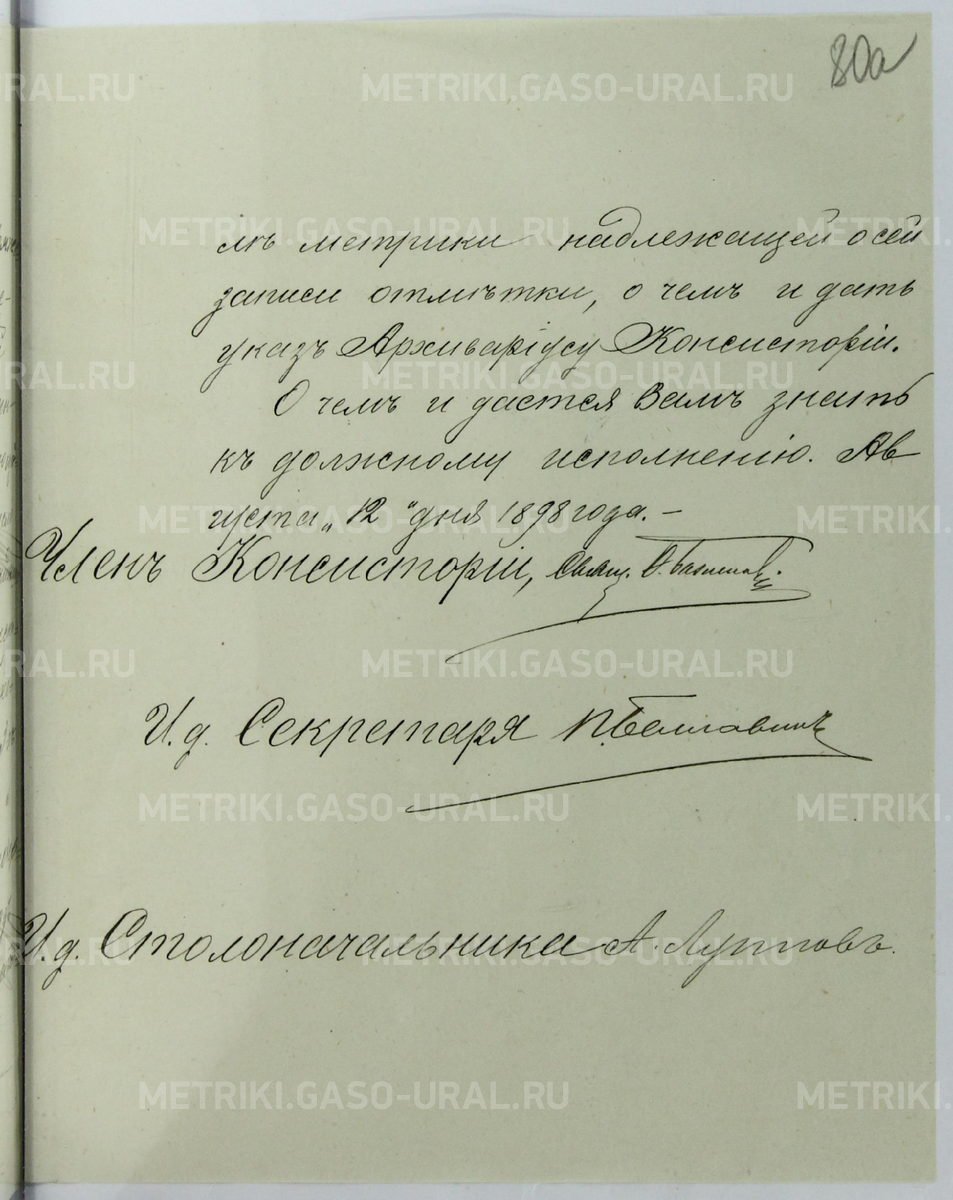 80а
мъ метрики надлежащей о сей
записи отмѣтки, о чемъ и дать
указъ Архиваріусу Консисторіи.
О чемъ и дается Вамъ знать
къ должному исполненію. Ав
густа „12" дня 1898 года. –
Членъ Консисторіи, Свящ.
И. д. Секретаря
И. д. Столоначальника А. Лупповъ.
METRIKI.GASO-URAL.RU